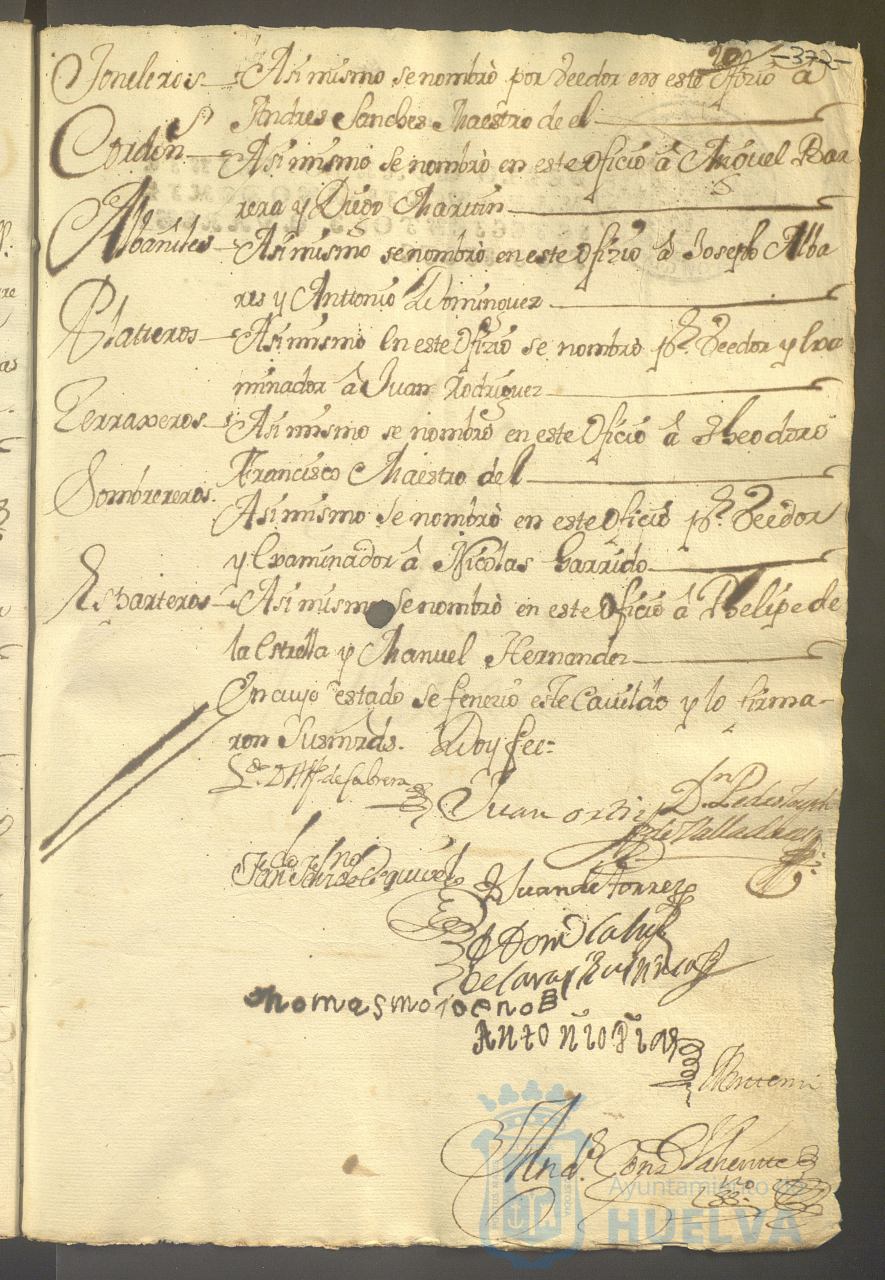 20 -372-
Toneleros Asi mismo se nombrò por Veedor en este ofizio a
Andres Sanches Maestro de el
Cordon Asi mismo se nombrò en este oficio â Miguel Bar
rera y Diego Martin
Albañiles Asi mismo se nombrò en este ofizio â Joseph Alba
res y Antonio Dominguez
Plateros Asi mismo en este Ofizio se nombrò pr. Veedor y Exa
minador â Juan Rodriguez
Terraxeros Asi mismo se nombrò en este Oficio â Theodoro
Francisco Maestro del
Sombrereros. Asi mismo se nombrò en este Oficio pr. Veedor
y Examinador â Nicolas Garrido
Esparteros Asi mismo se nombrò en este Oficio â Phelipe de
la Estrella y Manuel Hernandez
En cuyo estado se fenecio este Cavildo y lo firma-
ron Susmrds. Doy fee=
de Cabrera
Juan ortiz
de Valladares
de Esquivel
Juan de Torres
thomas moreno
Antoñio Diaz
Ante mi
Ands. Gonz Valiente
Ayuntamiento de
HUELVA